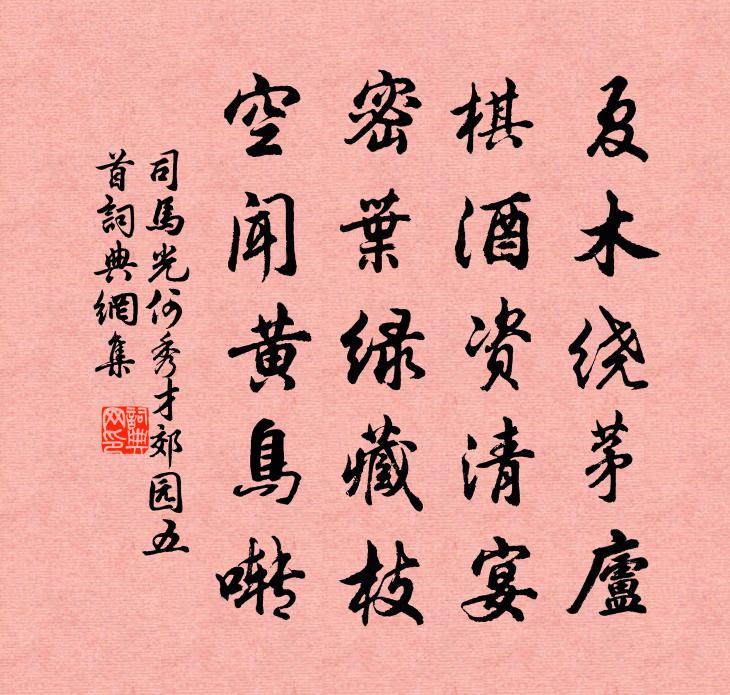 夏木绕茅廬
棋酒资清宴
密葉绿藏枝
空闻黄鳥啭
司馬光何秀才郊园五
首詞典網集
詞典网印